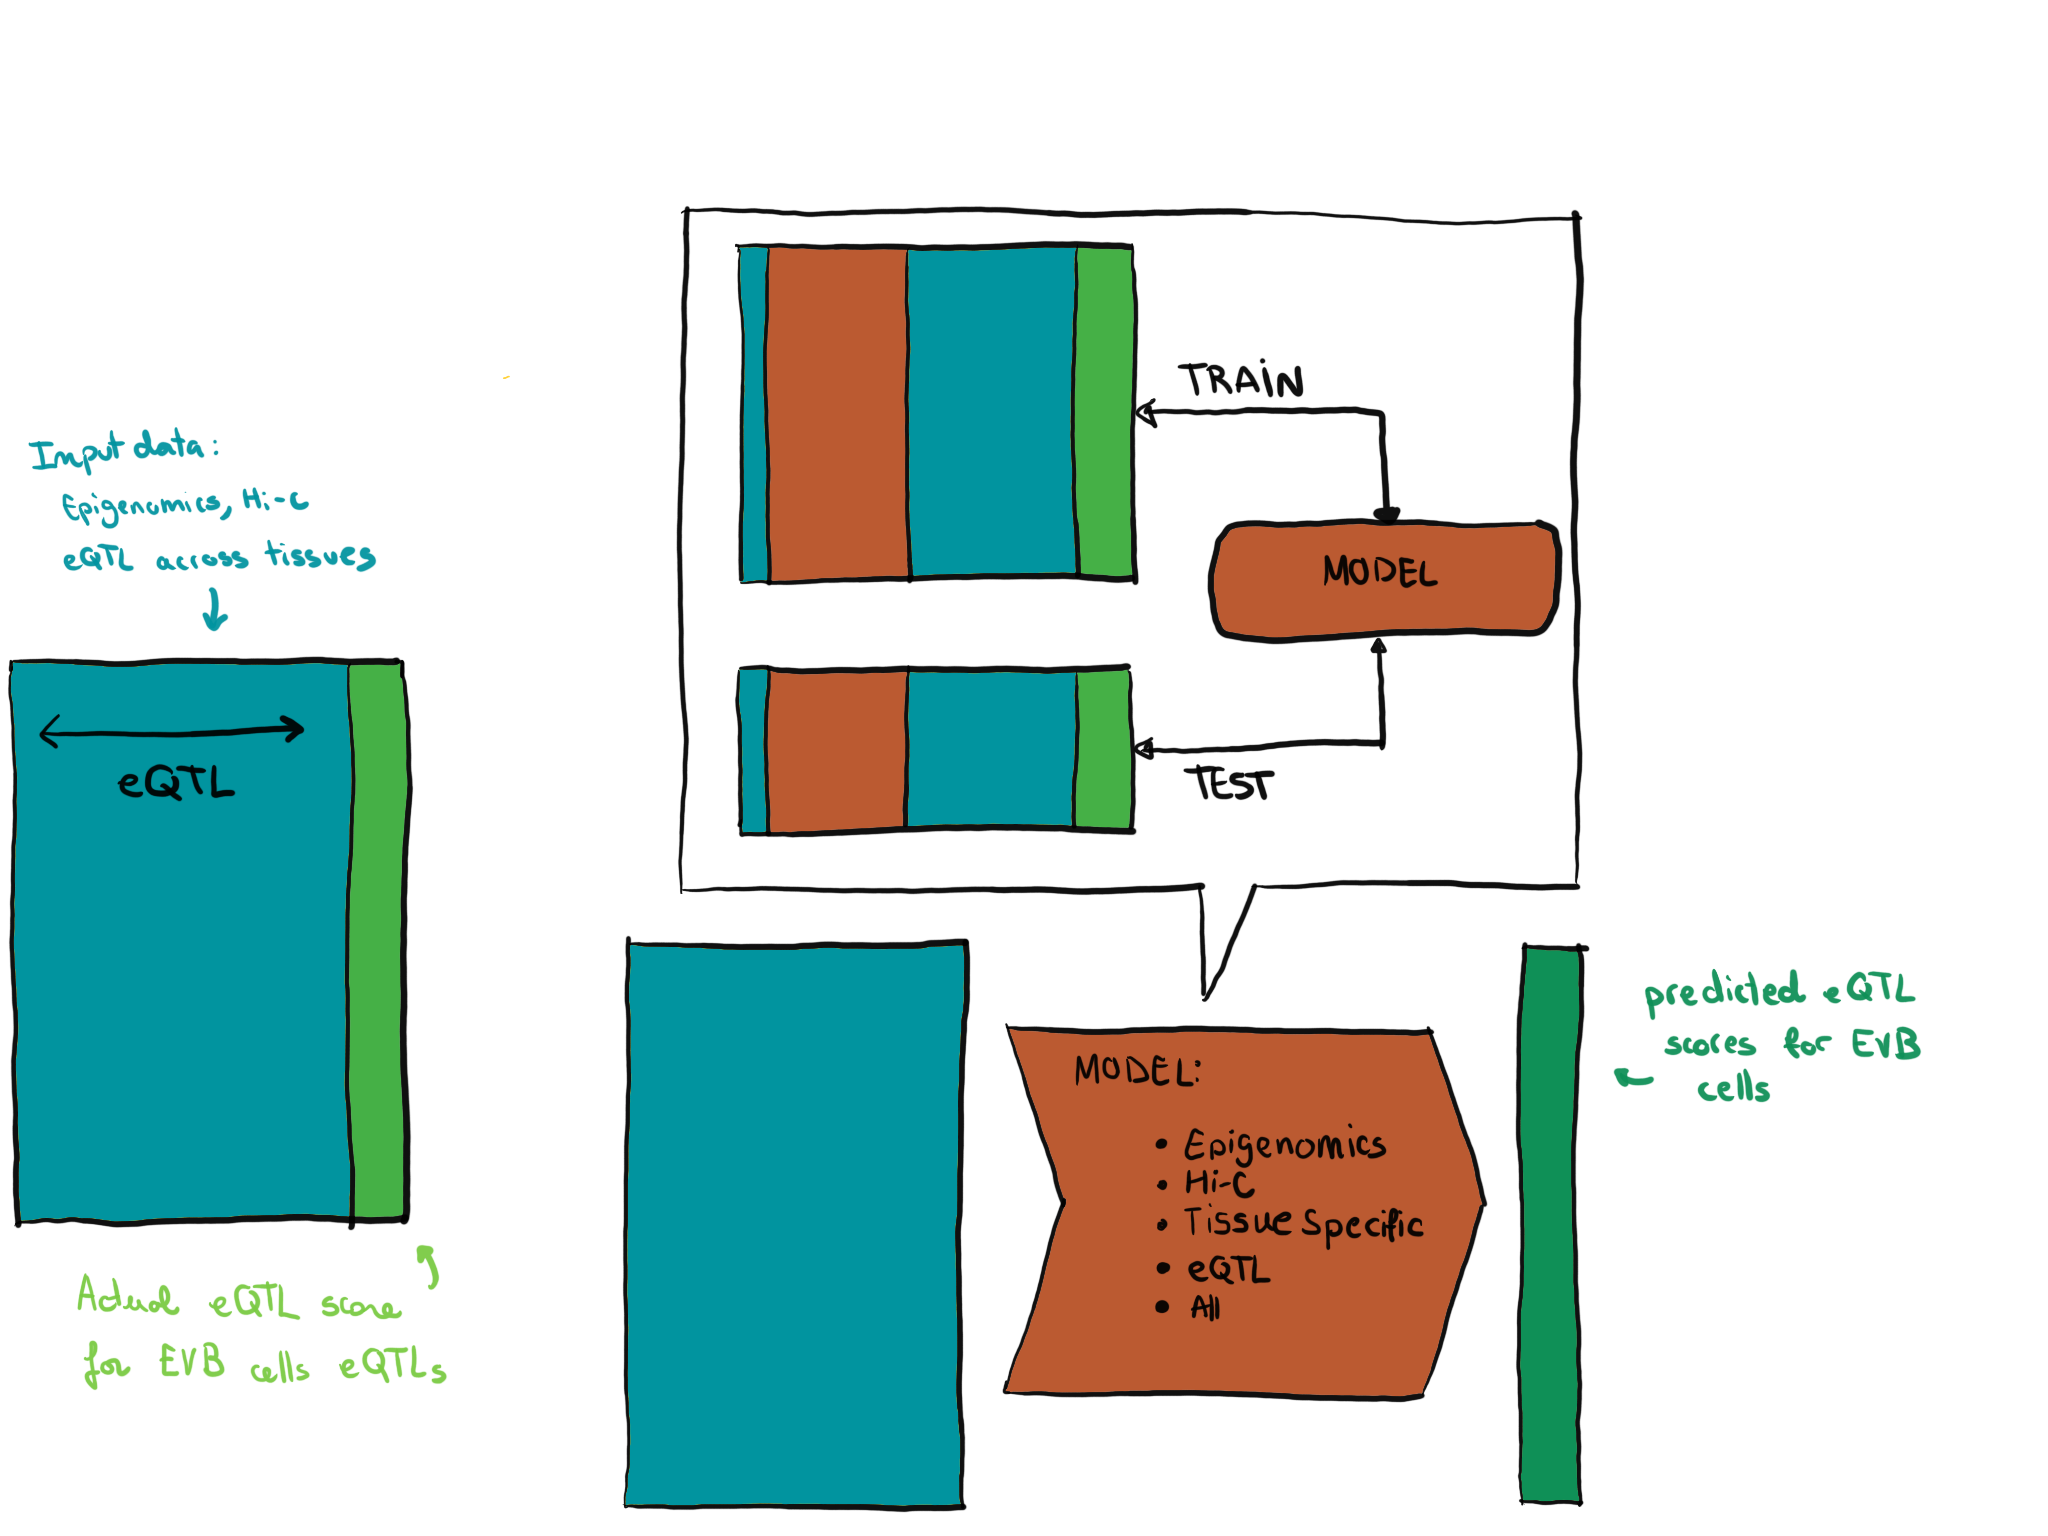 Input data:
Epigenomics, Hi-C
eQTL across tissues
eQTL
Actual eQTL score
for EVB cells eQTLs
TRAIN
MODEL
TEST
MODEL:
• Epigenomics
• Hi-C
• Tissue Specific
• eQTL
• All
predicted eQTL
scores for EVB
cells